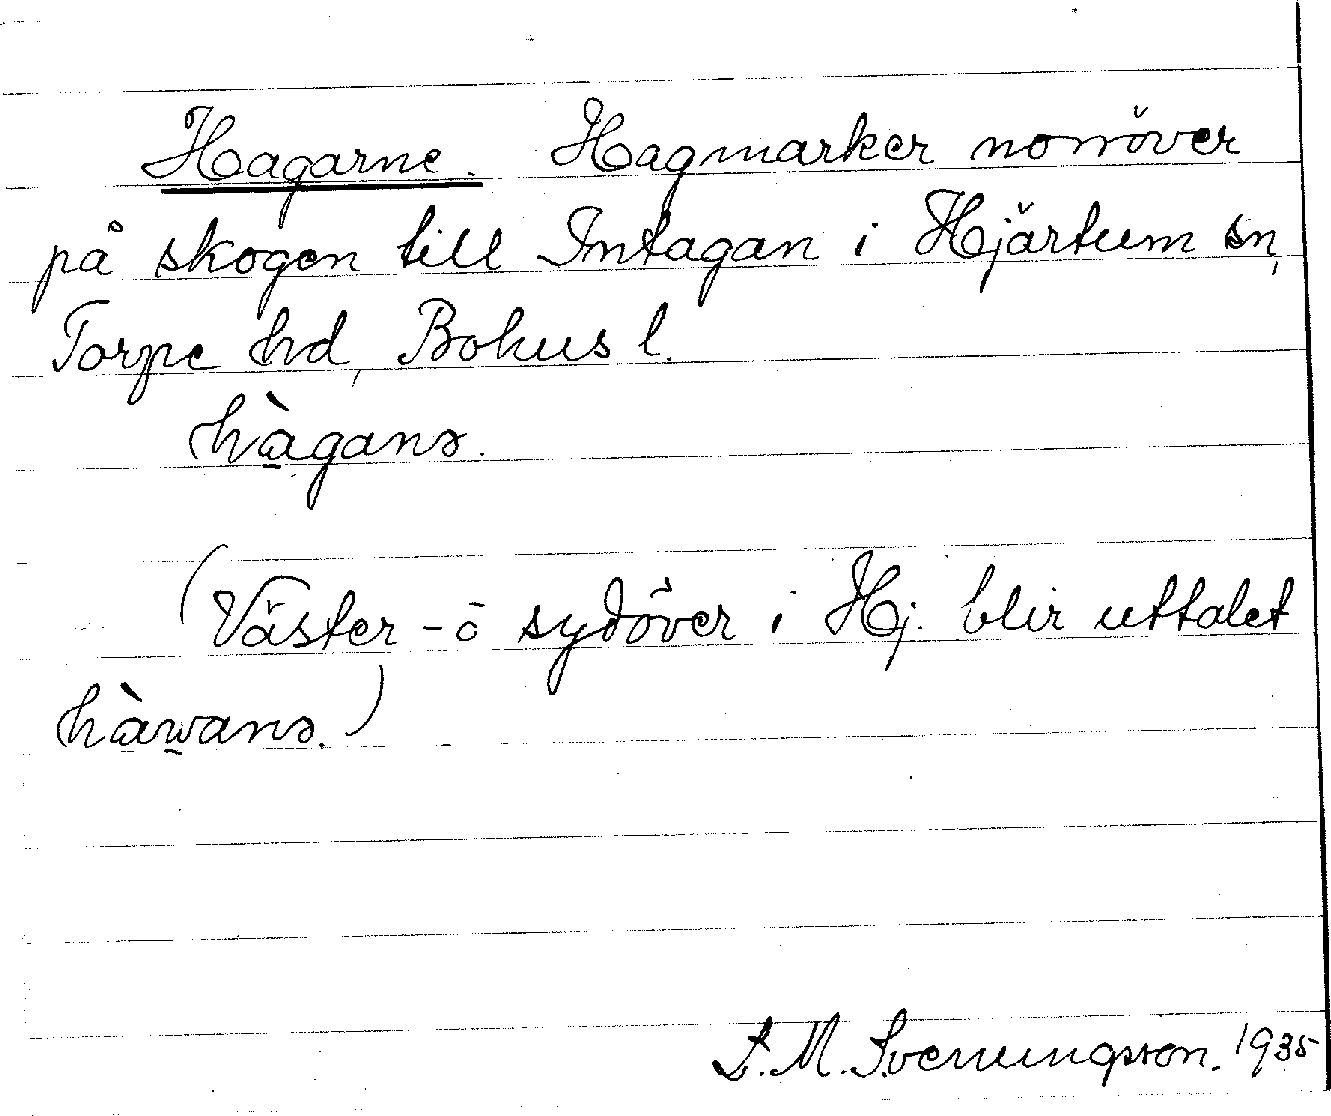 Hagarne. Hagmarker norröver
på skogen till Intagan i Hjärtum sn,
Torpe hd, Bohus l.
hàganə.
(Väster- ō sydöver i Hj. blir uttalet
hàwanə.)
L. M. Svenungsson. 1935